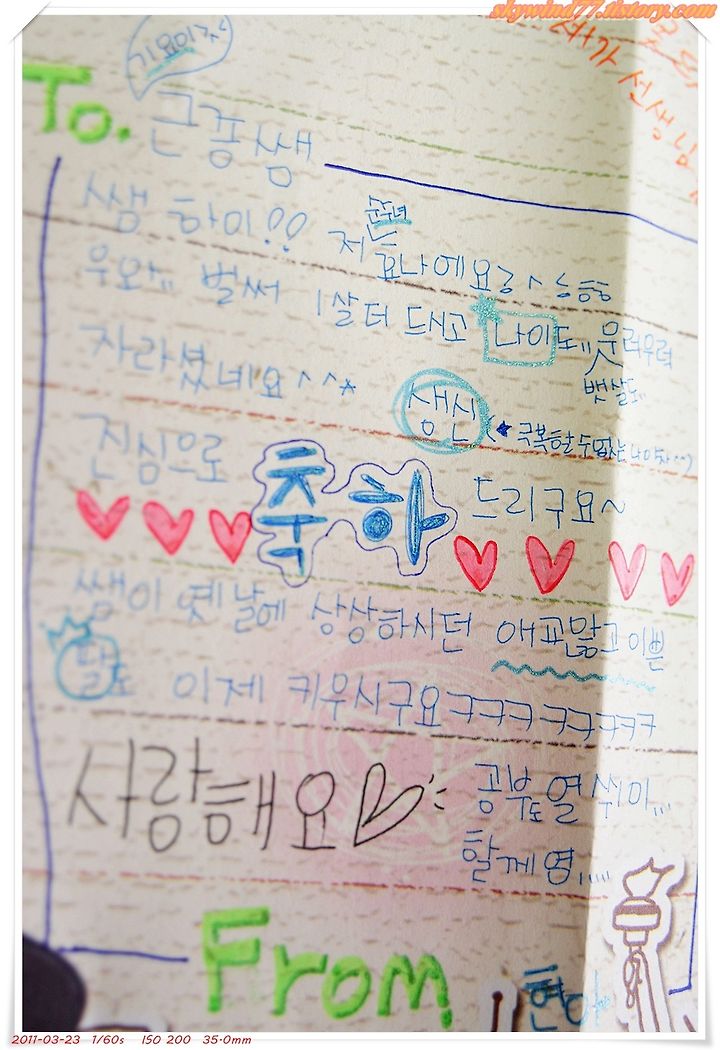 skywind77.tistory.com
선생님
To. 근풍쌤
쌤 하이!! 저
효나에요
우와,,, 벌써 1살 더 드시고 나이도,, 무럭무럭
자라셨네요^^* 뱃살도..
생신 (★극복할 수 없는 나이차^^)
진심으로 축하 드리구요~
쌤이 옛날에 상상하시던 애교많고 이쁜
딸도 이제 키우시구요ㅋㅋㅋㅋㅋㅋㅋ
사랑해요♡ 공부도 열씨미,,,
할께영,,,,,
From 현아
2011-03-23 1/60s ISO 200 35.0mm